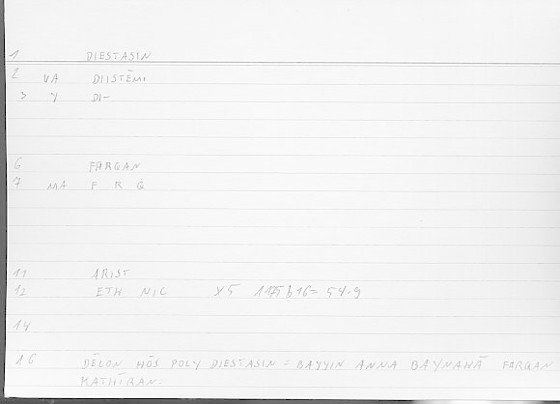 1 DIESTASIN
2 VA DIISTĒMI
3 Y DI-
6 FARGAN
7 MA F R Q
11 ARIST
12 ETH NIC X5 1175b16= 54.9
14
16 DĒLON HŌS POLY DIESTASIN = BAYYIN ANNA BAYNAHĀ FARGAN
KATHĪRAN.